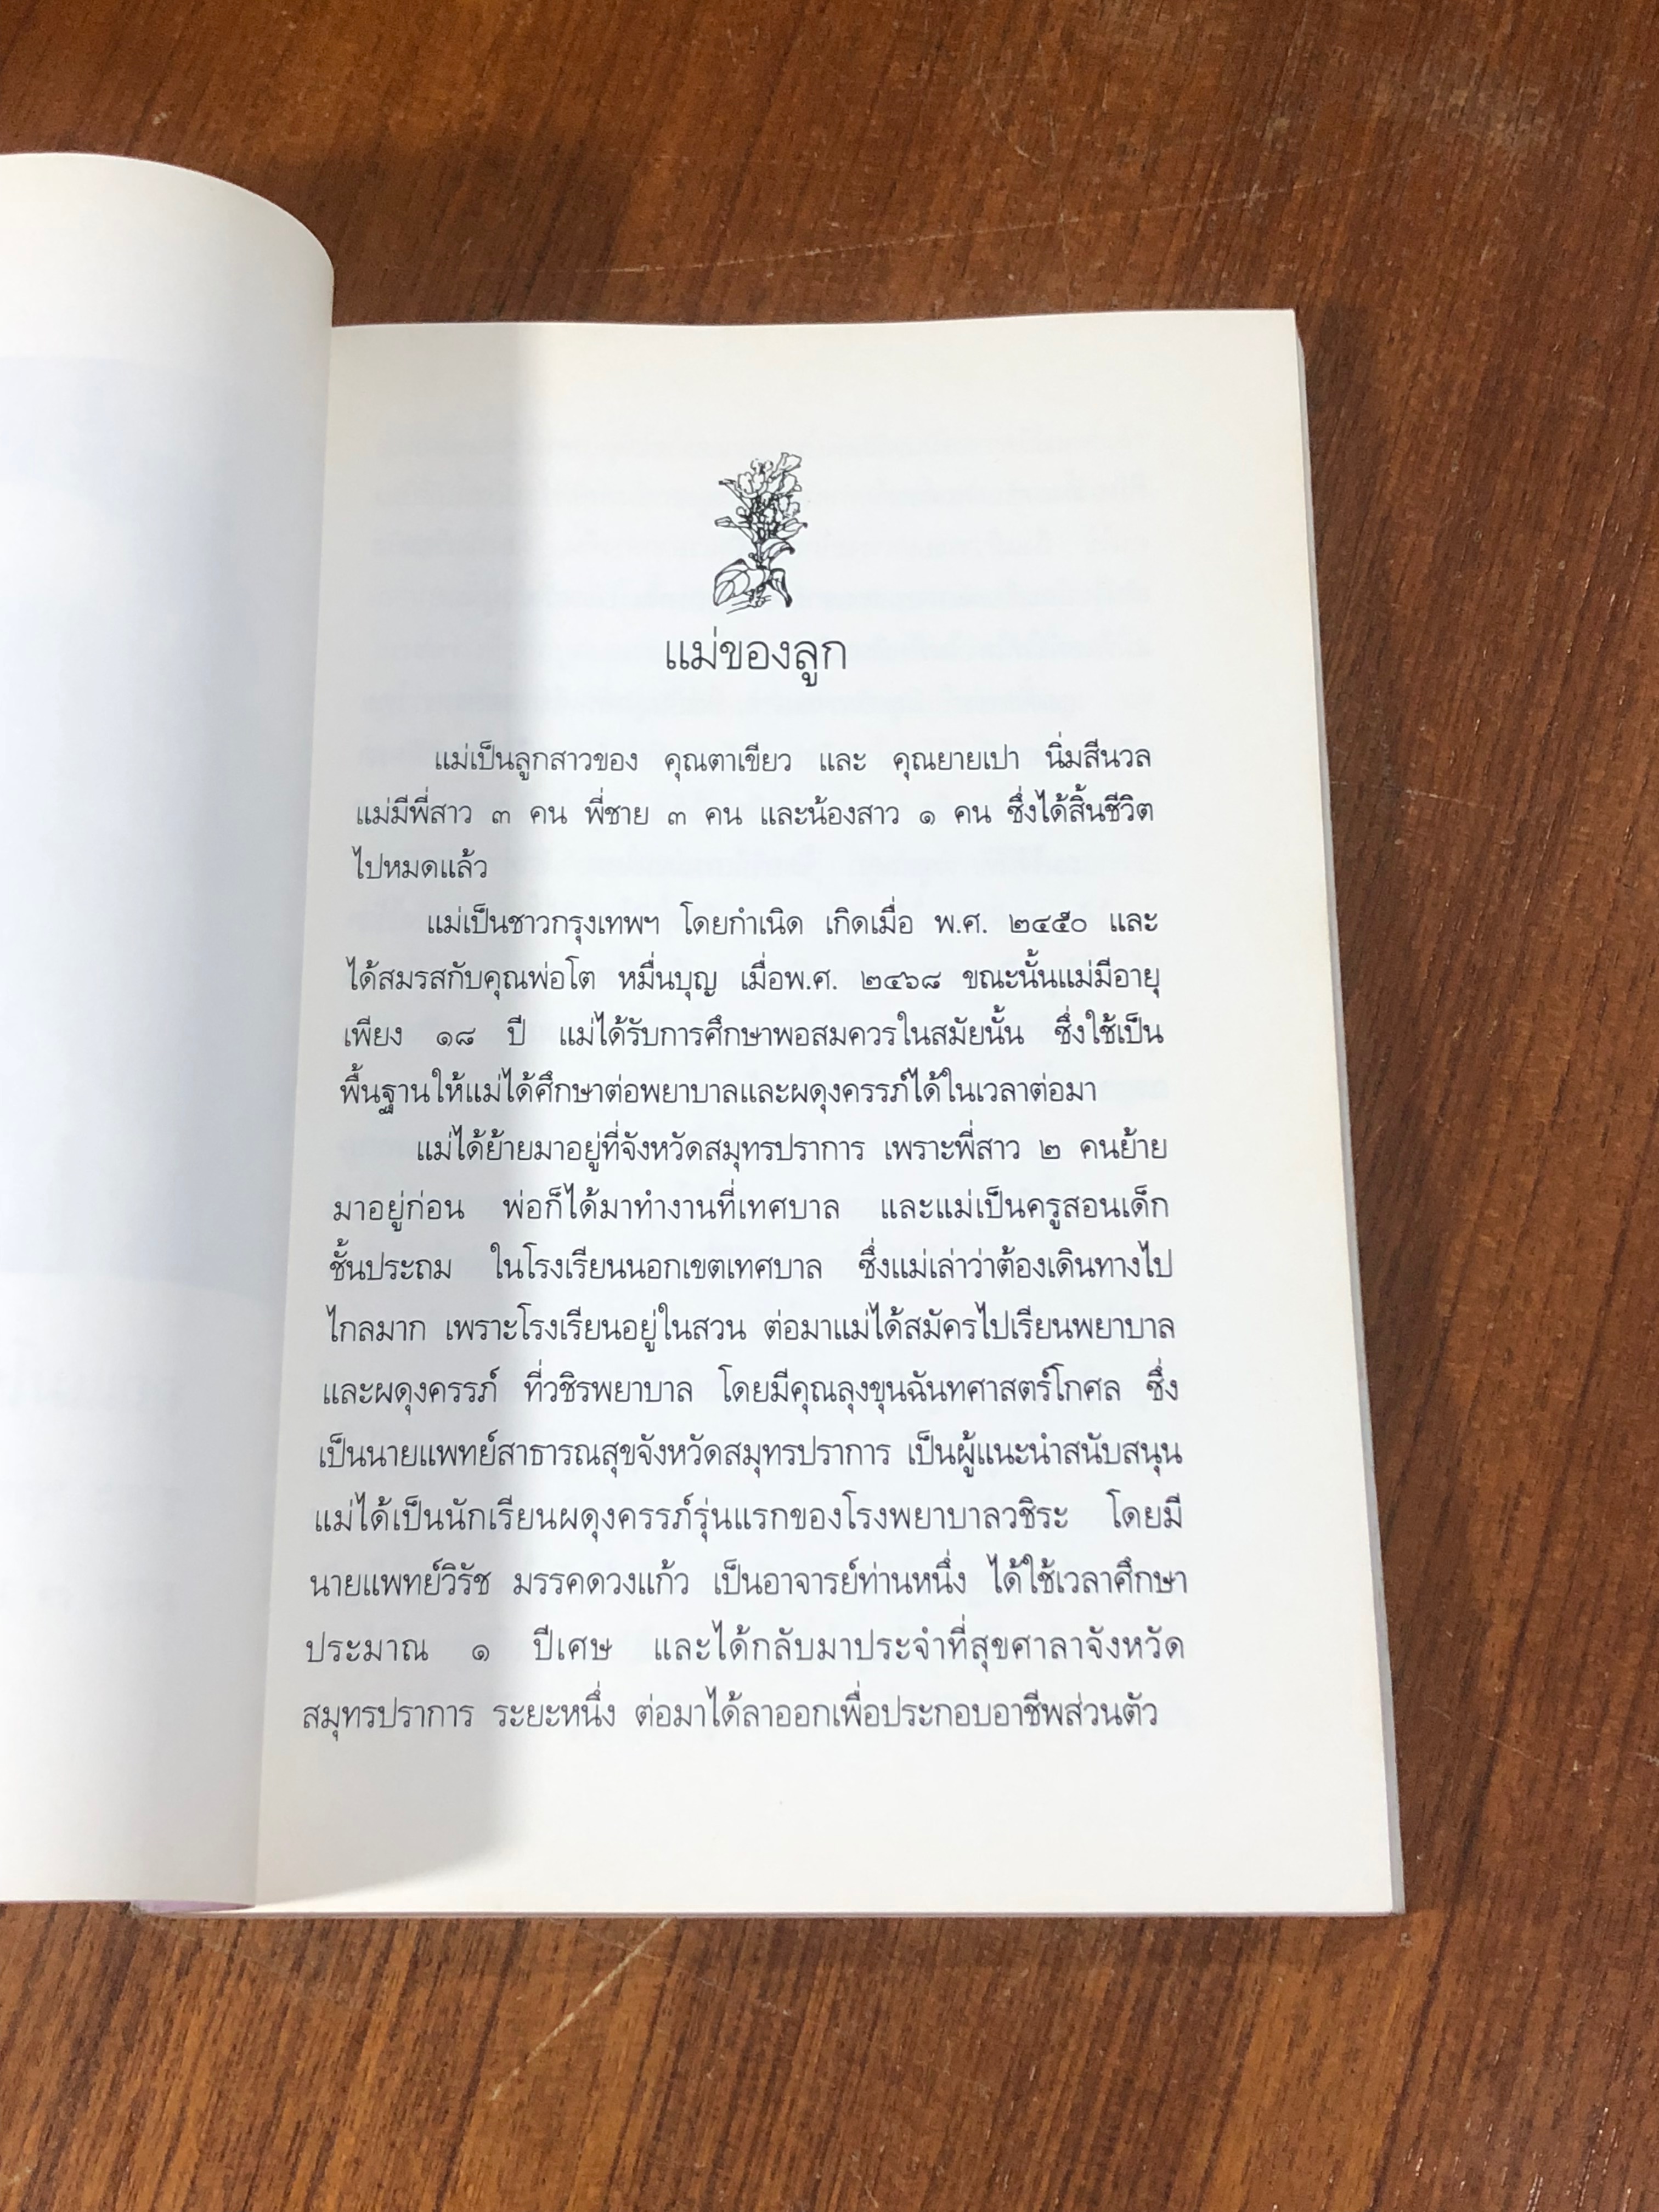 แม่ของลูก
แม่เป็นลูกสาวของ คุณตาเขียว และ คุณยายเปา นิ่มสีนวล
แม่มีพี่สาว ๓ คน พี่ชาย ๓ คน และน้องสาว ๑ คน ซึ่งได้สิ้นชีวิต
ไปหมดแล้ว
แม่เป็นชาวกรุงเทพฯ โดยกำเนิด เกิดเมื่อ พ.ศ. ๒๔๕๐ และ
ได้สมรสกับคุณพ่อโต หมื่นบุญ เมื่อพ.ศ. ๒๔๖๘ ขณะนั้นแม่มีอายุ
เพียง ๑๘ ปี แม่ได้รับการศึกษาพอสมควรในสมัยนั้น ซึ่งใช้เป็น
พื้นฐานให้แม่ได้ศึกษาต่อพยาบาลและผดุงครรภ์ได้ในเวลาต่อมา
แม่ได้ย้ายมาอยู่ที่จังหวัดสมุทรปราการ เพราะพี่สาว ๒ คนย้าย
มาอยู่ก่อน พ่อก็ได้มาทำงานที่เทศบาล และแม่เป็นครูสอนเด็ก
ชั้นประถม ในโรงเรียนนอกเขตเทศบาล ซึ่งแม่เล่าว่าต้องเดินทางไป
ไกลมาก เพราะโรงเรียนอยู่ในสวน ต่อมาแม่ได้สมัครไปเรียนพยาบาล
และผดุงครรภ์ ที่วชิรพยาบาล โดยมีคุณลุงขุนฉันทศาสตร์โกศล ซึ่ง
เป็นนายแพทย์สาธารณสุขจังหวัดสมุทรปราการ เป็นผู้แนะนำสนับสนุน
แม่ได้เป็นนักเรียนผดุงครรภ์รุ่นแรกของโรงพยาบาลวชิระ โดยมี
นายแพทย์วิรัช มรรคดวงแก้ว เป็นอาจารย์ท่านหนึ่ง ได้ใช้เวลาศึกษา
ประมาณ ๑ ปีเศษ และได้กลับมาประจำที่สุขศาลาจังหวัด
สมุทรปราการ ระยะหนึ่ง ต่อมาได้ลาออกเพื่อประกอบอาชีพส่วนตัว